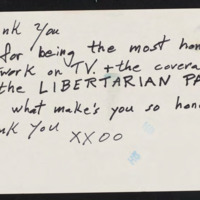 ank You
for being the most hon
work on T.V. + the covera
the LIBERTARIAN PA
what make's you so hon
ank You
XXOO